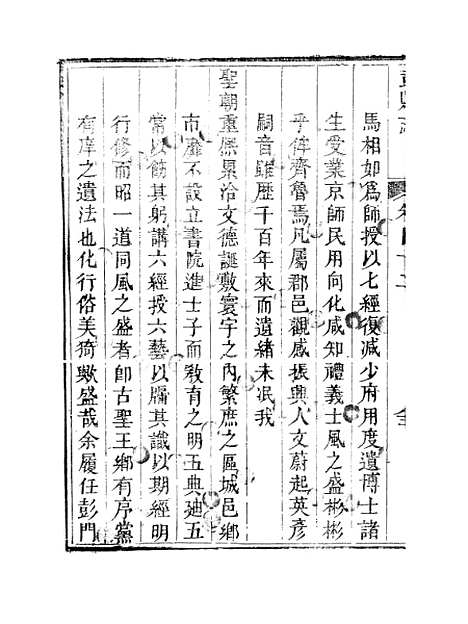 馬相如爲師授以七經復减少府用度遺博士諸
生受業京師民用向化咸知禮義士風之盛彬彬
乎侔齊魯焉凡屬郡邑觀感振興人文蔚起英彦
嗣音雖歷千百年來而遺緒未泯我
聖朝重熈累洽文德誕敷寰宇之内繁庶之區城邑鄉
市靡不設立書院進士子而敎育之明五典廸五
常以飭其躬講六經授六藝以牖其識以期經明
行修而昭一道同風之盛者卽古聖王鄉有序黨
有庠之遺法也化行俗美猗歟盛哉余履任彭門